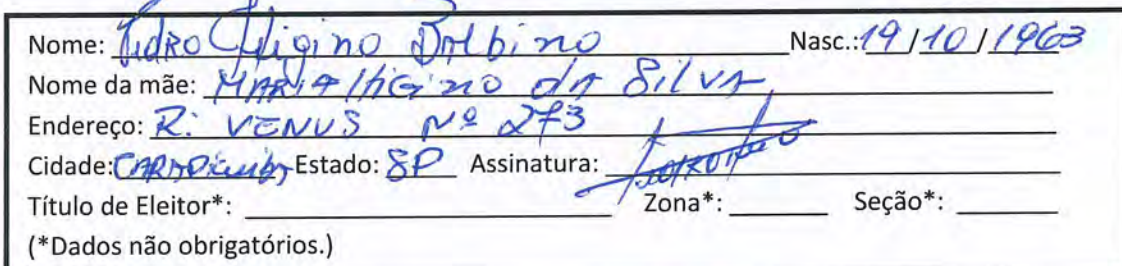 Nome: Pedro Higino Balbino Nasc.: 19/10/1963
Nome da mãe: MARIA HiGino dA SilVA
Endereço: R: VENUS Nº 273
Cidade: Estado: SP Assinatura:
Título de Eleitor*: Zona*: Seção*:
(*Dados não obrigatórios.)